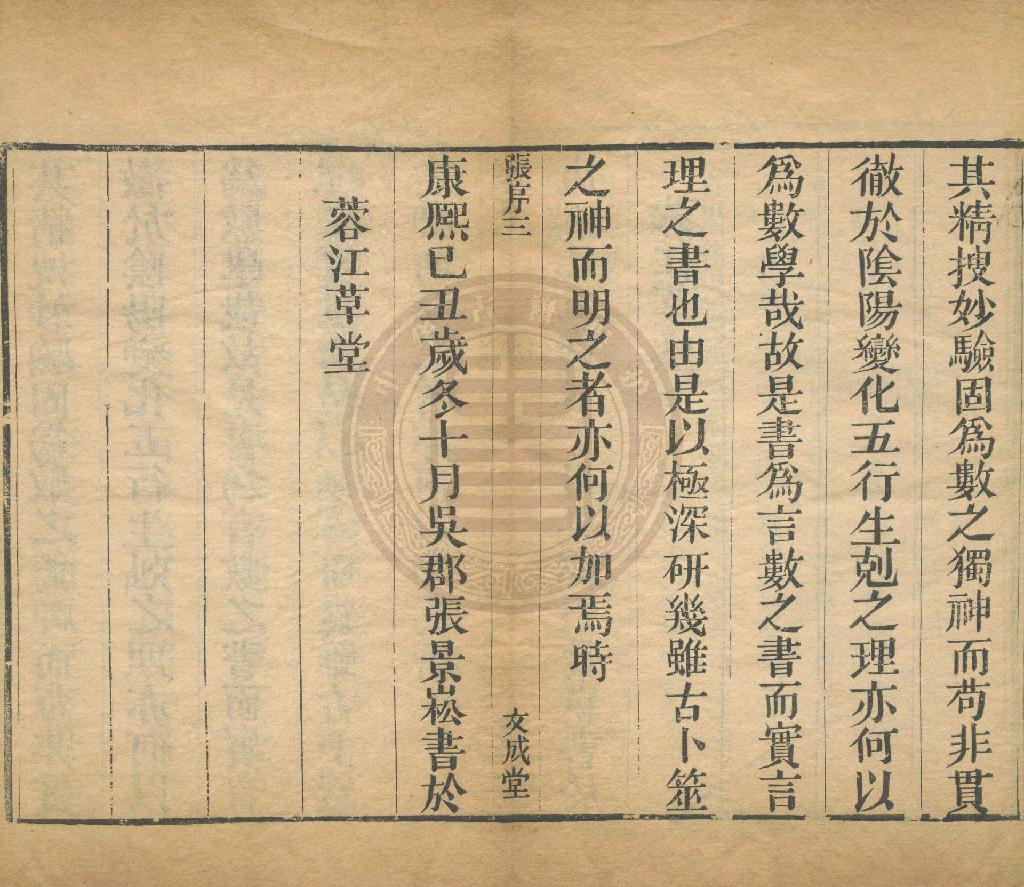 其精搜妙驗固爲數之獨神而苟非貫
徹於陰陽變化五行生剋之理亦何以
爲數學哉故是書爲言數之書而實言
理之書也由是以極深研幾雖古卜筮
之神而明之者亦何以加焉時
張序三
文成堂
康熙己丑歲冬十月吳郡張景崧書於
蓉江草堂